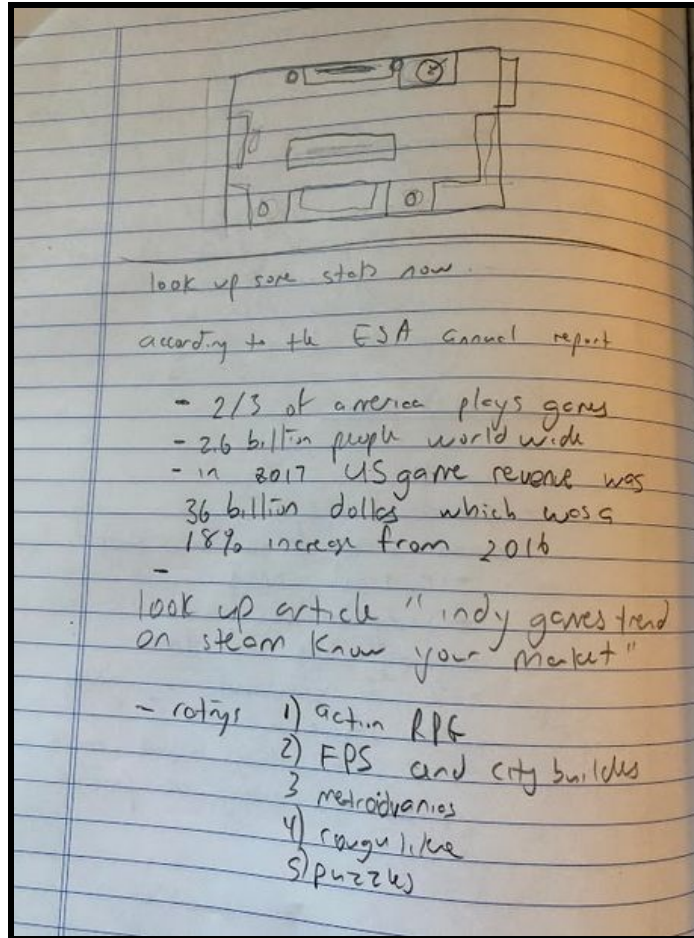 look up some stats now.
according to the ESA annual report
- 2/3 of america plays games
- 2.6 billion people world wide
- in 2017 US game revenue was
36 billion dollas which was a
18% increase from 2016
-
look up article "indy games trend
on steam know your market"
- ratings 1) action RPG
2) FPS and city builders
3 metroidvanias
4) rougulike
5) puzzles